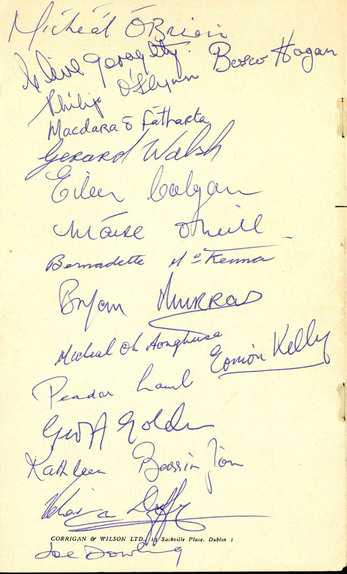 Mícheál Ó'Briain
Clive Geraghty
Bosco Hogan
Philip O'Flynn
Macdara Ó Fátharta
Gerard Walsh
Eileen Colgan
Máire O'Neill
Bernadette McKenna
Bryan Murray
Micheal Óh Aonghusa
Eamon Kelly
Peadar Lamb
Geoff Golden
Kathleen Barrington
Máire Duffy
CORRIGAN & WILSON LTD., 13 Sackville Place, Dublin 1
Joe Dowling